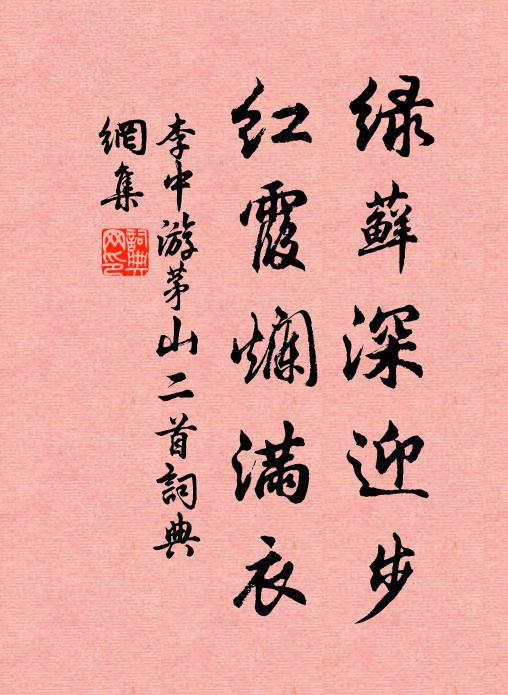 绿藓深迎步
红霞烂满衣
李中游茅山二首詞典
網集
詞典網印